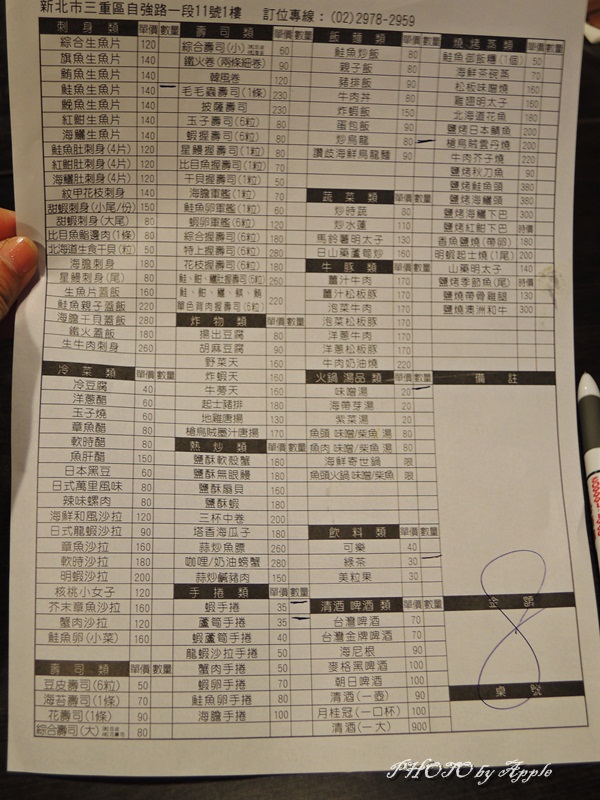 新北市三重區自強路一段11號1樓 訂位專線：(02)2978-2959
刺身類 單價 數量
綜合生魚片 120
旗魚生魚片 120
鮪魚生魚片 140
鮭魚生魚片 140
鮸魚生魚片 140
紅魽生魚片 140
海鱺生魚片 140
鮭魚肚刺身(4片) 140
紅魽肚刺身(4片) 140
海鱺肚刺身(4片) 140
紋甲花枝刺身 140
甜蝦刺身(小尾/份) 150
甜蝦刺身(大尾) 80
比目魚鰭邊肉(1條) 80
北海道生食干貝(粒) 50
海膽刺身 180
星鰻刺身(尾) 80
生魚片蓋飯 160
鮭魚親子蓋飯 220
海膽干貝蓋飯 280
鐵火蓋飯 180
生牛肉刺身 260
冷菜類 單價 數量
冷豆腐 40
洋蔥醋 60
玉子燒 60
章魚醋 80
軟時醋 80
魚肝醋 150
日本黑豆 60
日式萬里風味 80
辣味螺肉 80
海鮮和風沙拉 120
日式龍蝦沙拉 90
章魚沙拉 160
軟時沙拉 180
明蝦沙拉 200
核桃小女子 120
芥末章魚沙拉 160
蟹肉沙拉 120
鮭魚卵(小菜) 160
壽司類 單價 數量
豆皮壽司(6粒) 50
海苔壽司(1條) 70
花壽司(1條) 90
綜合壽司(大) 80
壽司類 單價 數量
綜合壽司(小) 60
鐵火卷(兩條細卷) 90
韓風卷 120
毛毛蟲壽司(1條) 230
披薩壽司 230
玉子壽司(6粒) 80
蝦握壽司(6粒) 80
星鰻握壽司(1粒) 80
比目魚握壽司(1粒) 70
干貝握壽司(1粒) 50
海膽軍艦(1粒) 70
鮭魚卵軍艦(1粒) 60
蝦卵軍艦(6粒) 120
綜合握壽司(6粒) 180
特上握壽司(6粒) 280
花枝握壽司(6粒) 180
260
220
炸物類 單價 數量
揚出豆腐 80
胡麻豆腐 90
野菜天 160
炸蝦天 160
牛蒡天 60
起士豬排 180
地雞唐揚 130
槍烏賊墨汁唐揚 170
熱炒類 單價 數量
鹽酥軟殼蟹 180
鹽酥無眼鰻 180
鹽酥扇貝 160
鹽酥蝦 180
三杯中卷 200
塔香海瓜子 180
蒜炒魚膘 260
咖哩/奶油螃蟹 280
蒜炒鹹豬肉 150
手捲類 單價 數量
蝦手捲 35
蘆筍手捲 35
蝦蘆筍手捲 40
龍蝦沙拉手捲 50
蟹肉手捲 50
蝦卵手捲 70
鮭魚卵手捲 80
海膽手捲 100
飯麵類 單價 數量
鮭魚炒飯 80
親子飯 80
豬排飯 90
牛肉丼 80
炸蝦飯 150
蛋包飯 90
炒烏龍 80
讚岐海鮮烏龍麵 90
蔬菜類 單價 數量
炒時蔬 80
炒水蓮 110
馬鈴薯明太子 130
日山藥蘆筍炒 160
牛豚類 單價 數量
薑汁牛肉 170
薑汁松板豚 170
泡菜牛肉 170
泡菜松板豚 170
洋蔥牛肉 170
洋蔥松板豚 170
牛肉奶油燒 220
火鍋 湯品類 單價 數量
味噌湯 20
海帶芽湯 20
紫菜湯 20
魚頭 味噌/柴魚 湯 80
魚肉 味噌/柴魚 湯 80
海鮮寄世鍋 限
魚頭火鍋 味噌/柴魚 限
飲料類 單價 數量
可樂 40
綠茶 30
美粒果 30
清酒 啤酒類 單價 數量
台灣啤酒 70
台灣金牌啤酒 70
海尼根 90
麥格黑啤酒 100
朝日啤酒 100
清酒(一壺) 90
月桂冠(一口杯) 100
清酒(一大) 900
燒烤蒸類 單價 數量
鮭魚御飯糰(1個) 50
海鮮茶碗蒸 70
松板味噌燒 160
雞翅明太子 160
北海道花魚 200
鹽烤日本鯖魚 200
槍烏賊雲丹燒 200
牛肉芥子燒 220
鹽烤秋刀魚 90
鹽烤鮭魚頭 380
鹽烤海鱺頭 380
鹽烤海鱺下巴 300
鹽烤紅魽下巴 時價
香魚鹽燒(帶卵) 180
明蝦起士燒(1尾) 200
山藥明太子 140
鹽烤季節魚(尾) 時價
鹽燒帶骨雞腿 130
鹽燒澳洲和牛 300
備註
金額
8
桌號
PHOTO by Apple